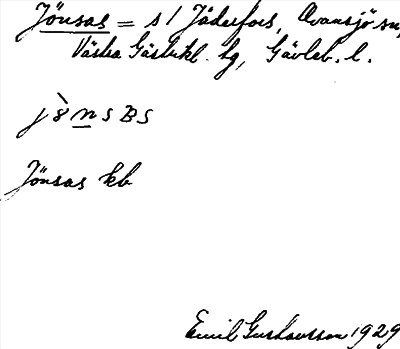 Jönsas = s / Jäderfors, Ovansjö sn,
Västra Gästrikl. hg, Gävleb. l.
Jönsas kb
Emil Gustavsson 1929